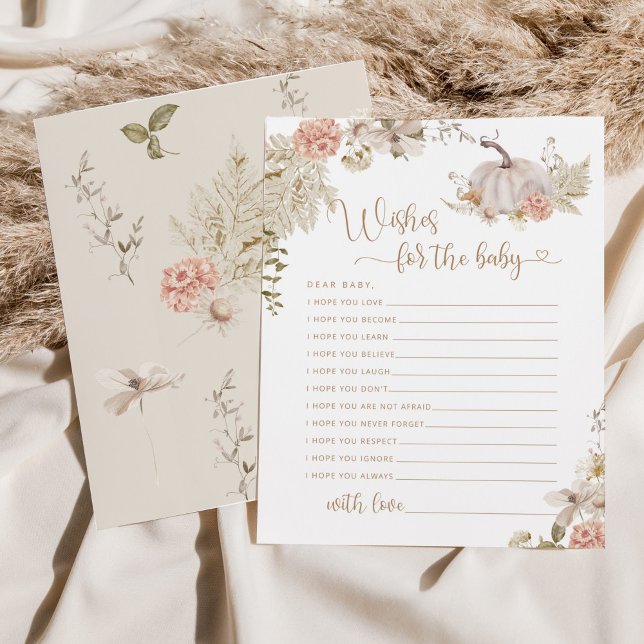 Wishes
for the baby
DEAR BABY,
I HOPE YOU LOVE
I HOPE YOU BECOME
I HOPE YOU LEARN
I HOPE YOU BELIEVE
I HOPE YOU LAUGH
I HOPE YOU DON'T
I HOPE YOU ARE NOT AFRAID
I HOPE YOU NEVER FORGET
I HOPE YOU RESPECT
I HOPE YOU IGNORE
I HOPE YOU ALWAYS
with love